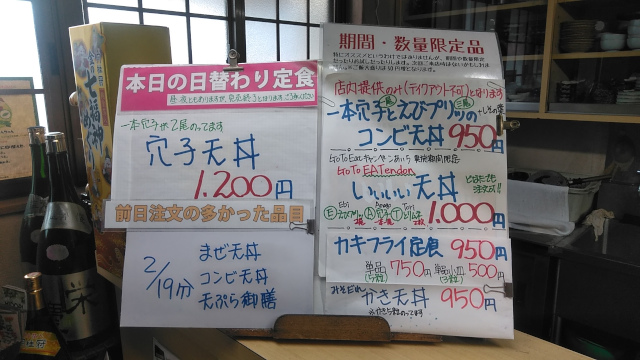 本日の日替わり定食
一本穴子が2尾のってます
穴子天丼
1.200円
前日注文の多かった品目
2/19分
まぜ天丼
コンビ天丼
天ぷら御膳
期間・数量限定品
店内提供のみ(テイクアウト不可)となります
一本穴子とえびプリプリの
コンビ天丼 950円
GoToEatキャンペーンあいち 実施期間限定
GoTo EATendon
いいいい天丼
1.000円
Ebi
Anago
Tori
カキフライ定食 950円
単品 750円
(5粒)
単品小皿 500円
(3粒)
みそだれ
かき天丼 950円
七福神